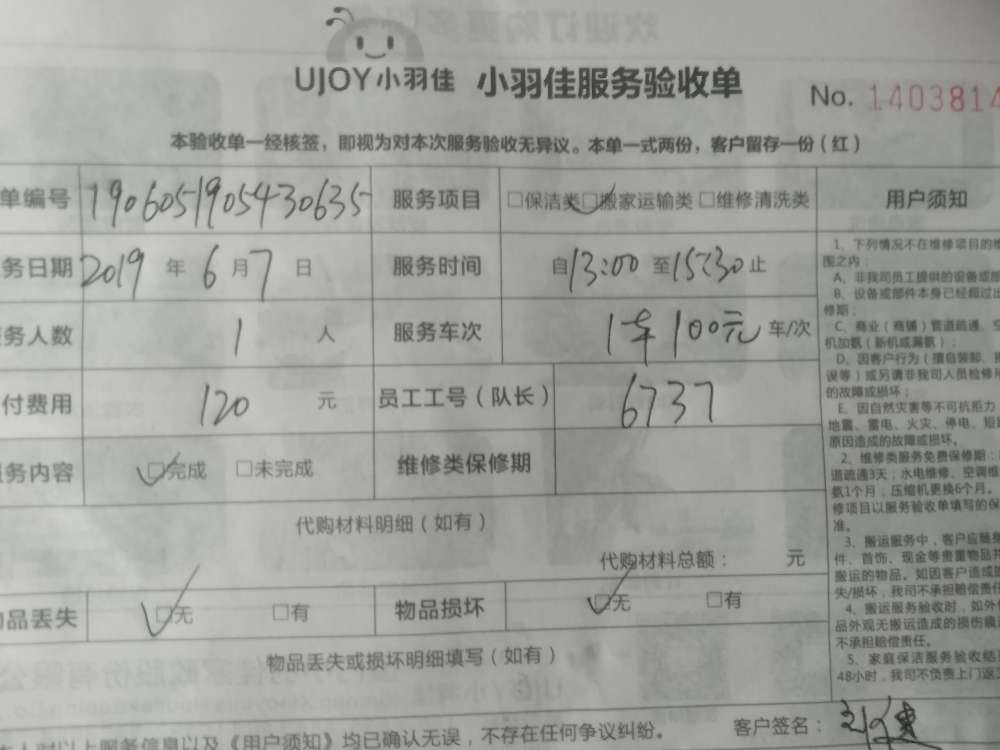 UJOY小羽佳 小羽佳服务验收单 No. 1403814
本验收单一经核签，即视为对本次服务验收无异议。本单一式两份，客户留存一份（红）
单编号 1906051905430635 服务项目 □保洁类 □搬家运输类 □维修清洗类 用户须知
务日期 2019 年 6 月 7 日 服务时间 自13:00 至15:30止
务人数 1 人 服务车次 1车100元 车/次
付费用 120 元 员工工号（队长） 6737
服务内容 □完成 □未完成 维修类保修期
代购材料明细（如有）
代购材料总额： 元
物品丢失 □无 □有 物品损坏 □无 □有
物品丢失或损坏明细填写（如有）
本人对以上服务信息以及《用户须知》均已确认无误，不存在任何争议纠纷。 客户签名：
1、下列情况不在维修项目的维
围之内：
A、非我司员工提供的设备或
B、设备或部件本身已经超过
修期；
C、商业（商铺）管道疏通、空
机加氨（新机或漏氨）；
D、因客户行为（擅自装卸、
误等）或另请非我司人员检修
的故障或损坏；
E、因自然灾害等不可抗拒力
地震、雷电、火灾、停电、短
原因造成的故障或损坏。
2、维修类服务免费保修期：
道疏通3天；水电维修、空调维
氨1个月；压缩机更换6个月。
修项目以服务验收单填写的保
准。
3、搬运服务中，客户应随身
件、首饰、现金等贵重物品
搬运的物品。如因客户造成
失/损坏，我司不承担赔偿责任
4、搬运服务验收时，如外
品外观无搬运造成的损伤痕
不承担赔偿责任。
5、家庭保洁服务验收结
48小时，我司不负责上门返